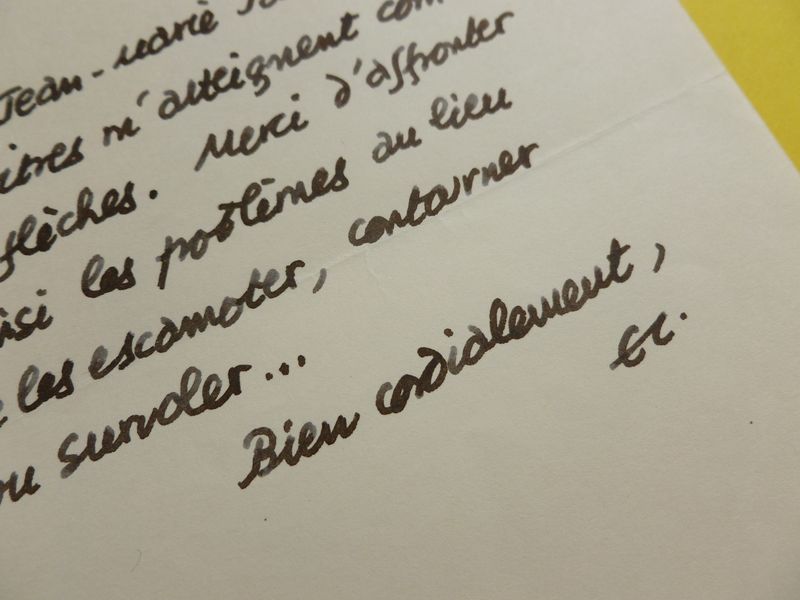 Jean-Marie
itres m'atteignent com
flèches. Merci d'affronter
nsi les problèmes au lieu
e les escamoter, contourner
ou survoler...
Bien cordialement,
EC.